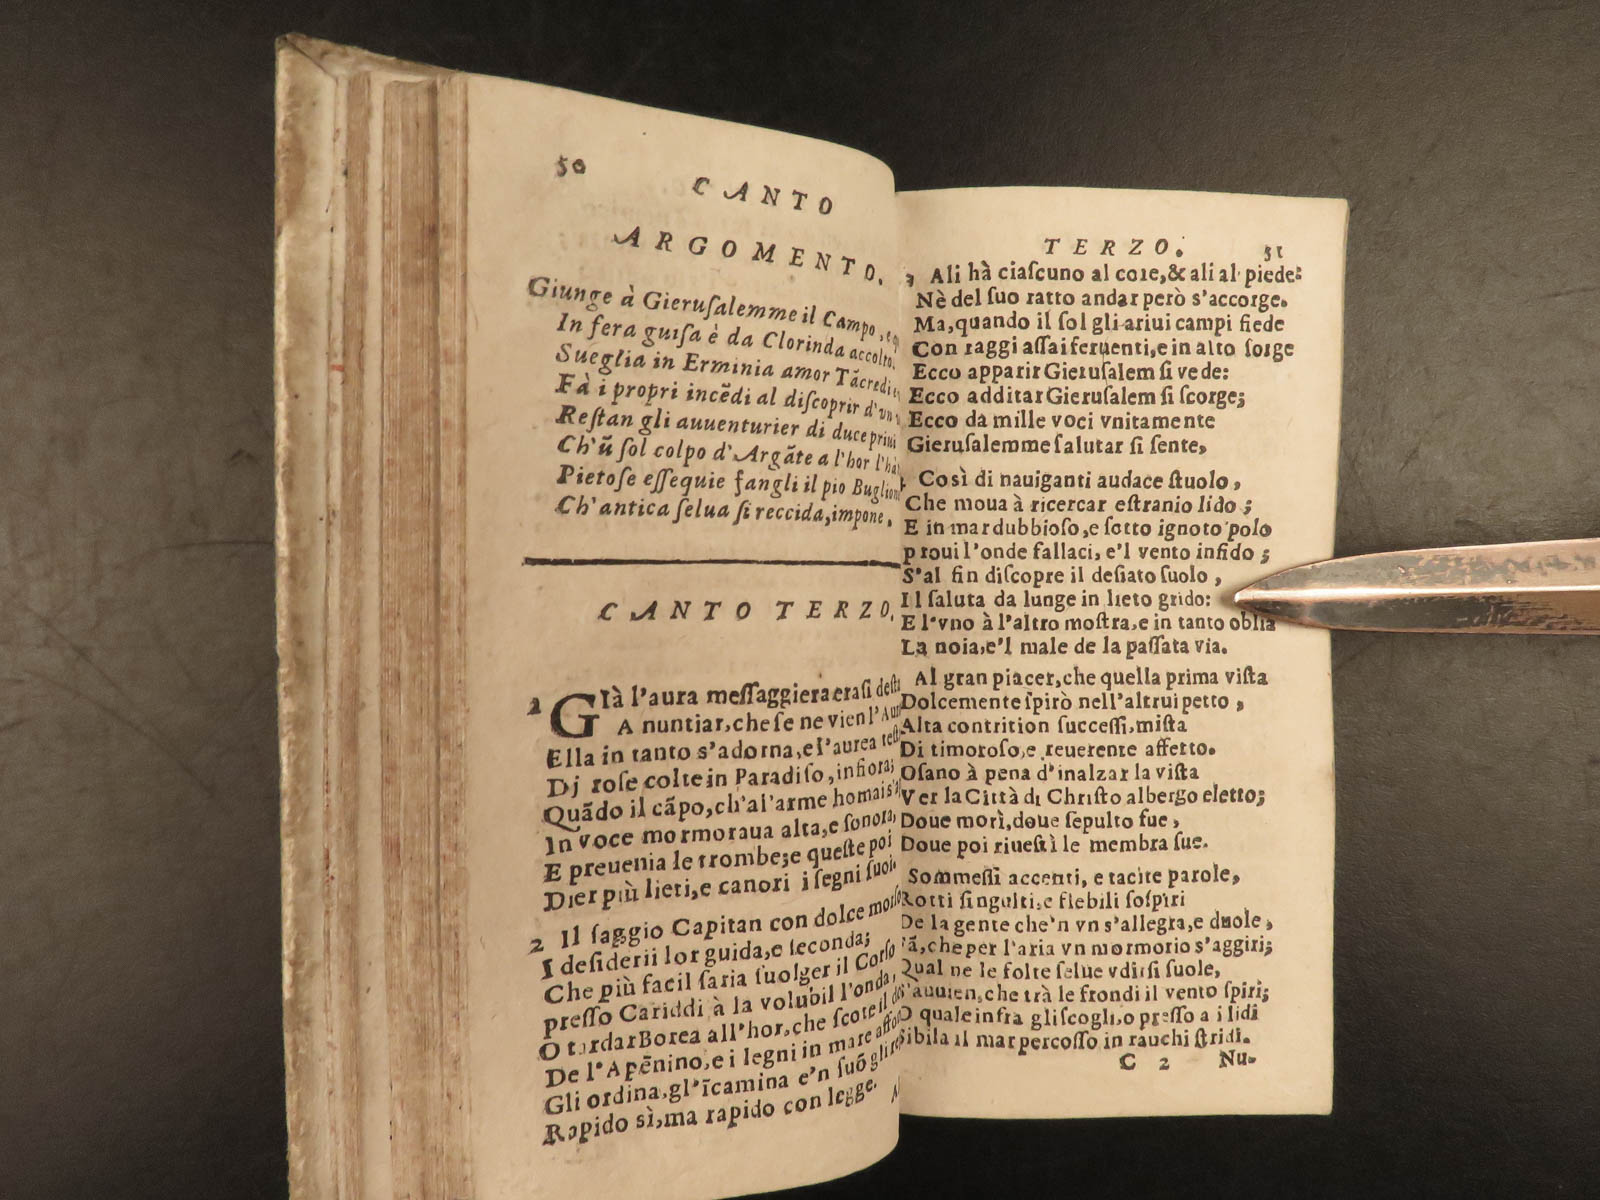 50
CANTO
ARGOMENTO.
Giunge à Gieruſalemme il Campo, e
In fera guiſa è da Clorinda accolto.
Sueglia in Erminia amor Tãcredi
Fà i propri incẽdi al diſcoprir d'vn
Reſtan gli auuenturier di duce priui
Ch'ũ ſol colpo d'Argãte a l'hor l'hà
Pietoſe eſſequie fangli il pio Buglion
Ch'antica ſelua ſi reccida, impone.
CANTO TERZO.
1 GIà l'aura meſſaggiera eraſi deſta
A nuntiar, che ſe ne vien l'Au
Ella in tanto s'adorna, e l'aurea teſt
Di roſe colte in Paradiſo, infiora;
Quãdo il cãpo, ch'al'arme homai s'
In voce mormoraua alta, e ſonora,
E preuenia le trombe; e queſte poi
Dier più lieti, e canori i ſegni ſuoi.
2 Il ſaggio Capitan con dolce morſo
I deſiderii lor guida, e ſeconda;
Che più facil ſaria ſuolger il Corſo
preſſo Cariddi à la volubil l'onda,
O tardar Borea all'hor, che ſcote il do
De l'Apẽnino, e i legni in mare aſſor
Gli ordina, gl'ĩcamina e'n ſuõ gli re
Rapido sì, ma rapido con legge.
TERZO. 51
3 Ali hà ciaſcuno al core, & ali al piede:
Nè del ſuo ratto andar però s'accorge.
Ma, quando il ſol gli ariui campi fiede
Con raggi aſſai feruenti, e in alto ſorge
Ecco apparir Gieruſalem ſi vede:
Ecco additar Gieruſalem ſi ſcorge;
Ecco da mille voci vnitamente
Gieruſalemme ſalutar ſi ſente,
Così di nauiganti audace ſtuolo,
Che moua à ricercar eſtranio lido;
E in mar dubbioſo, e ſotto ignoto polo
proui l'onde fallaci, e'l vento infido;
S'al fin diſcopre il deſiato ſuolo,
Il ſaluta da lunge in lieto grido:
E l'vno à l'altro moſtra, e in tanto oblia
La noia, e'l male de la paſſata via.
Al gran piacer, che quella prima viſta
Dolcemente ſpirò nell'altrui petto,
Alta contrition ſucceſſi, miſta
Di timoroſo, e reuerente affetto.
Oſano à pena d'inalzar la viſta
Ver la Città di Chriſto albergo eletto;
Doue morì, doue ſepulto fue,
Doue poi riueſtì le membra ſue.
Sommeſſi accenti, e tacite parole,
Rotti ſingulti, e flebili ſoſpiri
De la gente che'n vn s'allegra, e duole,
che per l'aria vn mormorio s'aggiri;
Qual ne le folte ſelue vdirſi ſuole,
S'auuien, che trà le frondi il vento ſpiri;
O quale infra gli ſcogli, o preſſo a i lidi
Sibila il mar percoſſo in rauchi ſtridi.
C 2 Nu-